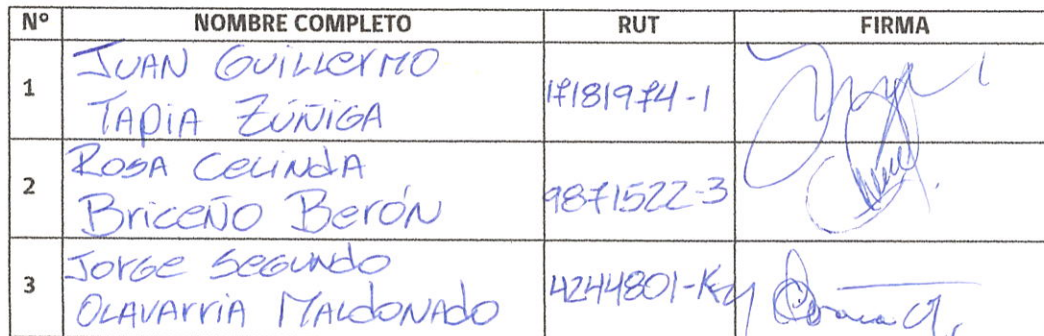 Nº NOMBRE COMPLETO RUT FIRMA
1 JUAN GUILLERMO TAPIA ZÚÑIGA 17181974-1
2 ROSA CELINDA BRICEÑO BERÓN 9871522-3
3 JORGE SEGUNDO OLAVARRIA MALDONADO 4244801-K